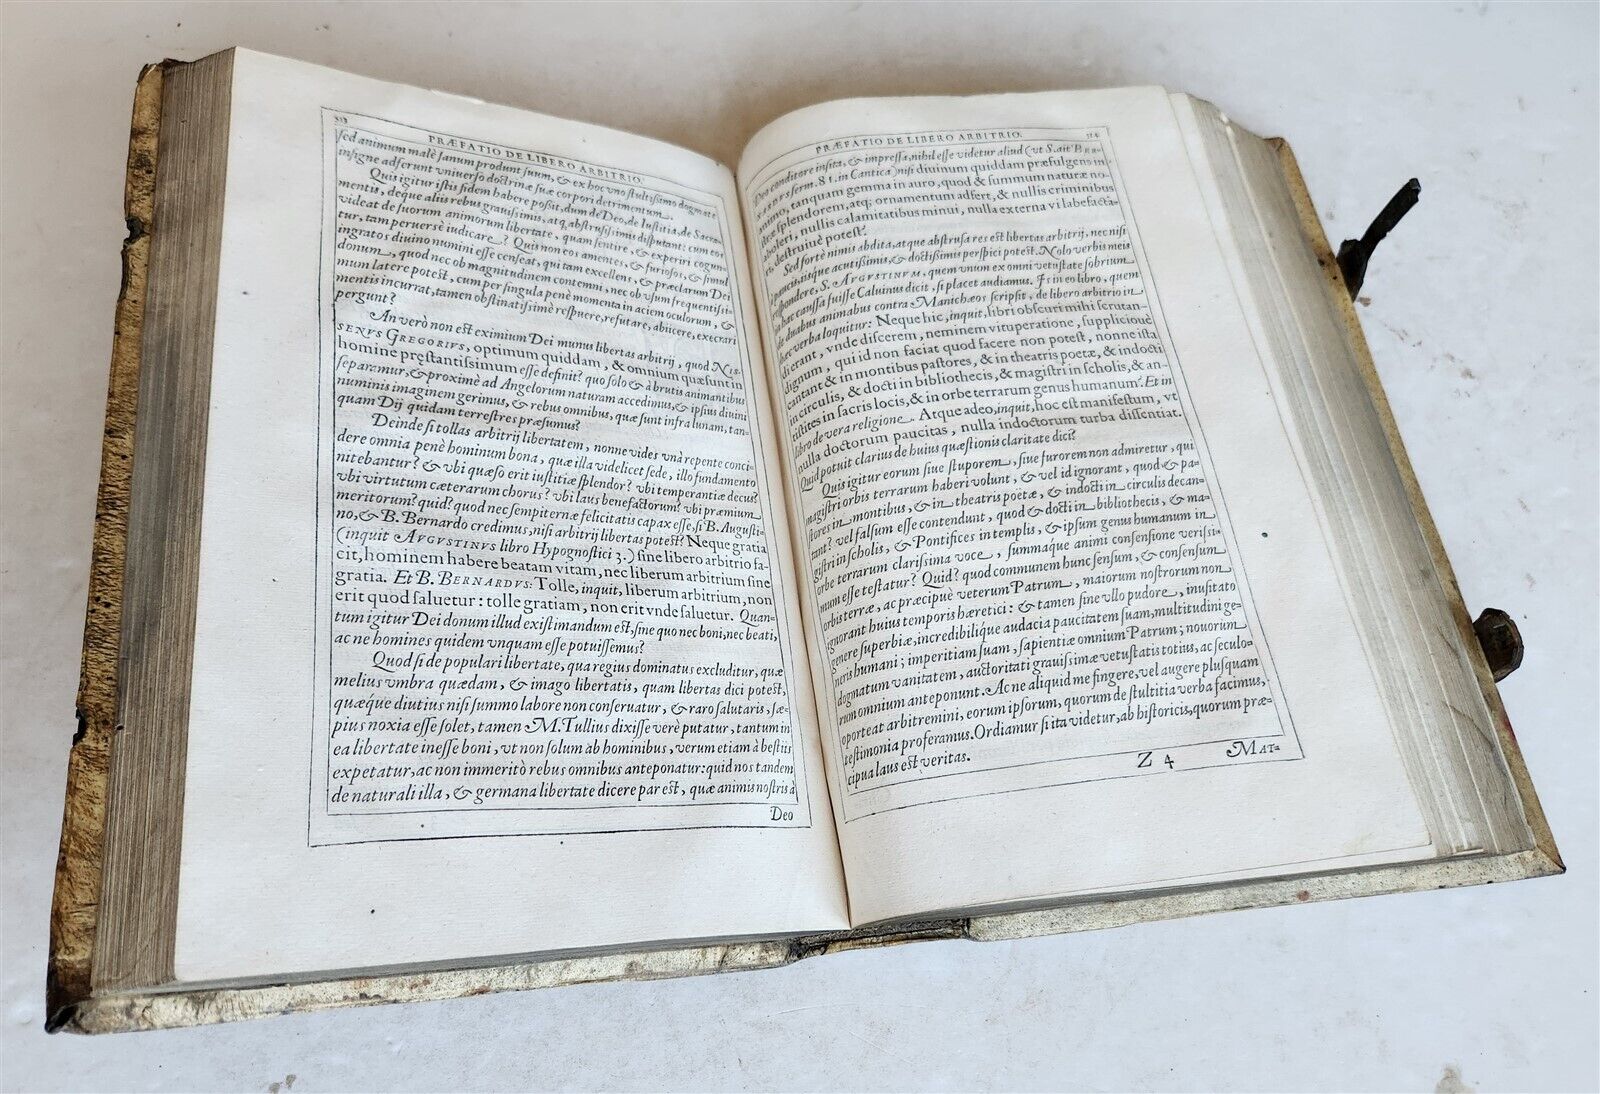 513
PRÆFATIO DE LIBERO ARBITRIO.
sed animum malè sanum produnt suum, & ex hoc uno stultissimo dogmate
insigne adferunt universo doctrinæ suæ corpori detrimentum.
Quis igitur istis fidem habere possit, dum de Deo, de Iustitia, de Sacra-
mentis, deque aliis rebus gravissimis, atq; abstrusissimis disputant: cum eos
videat de suorum animorum libertate, quam sentire, & experiri cogun-
tur, tam perversè iudicare? Quis non eos amentes, & furiosos, & simul
ingratos divino numini esse censeat, qui tam excellens, & præclarum Dei
donum, quod nec ob magnitudinem contemni, nec ob usum frequentissi-
mum latere potest, cum per singula penè momenta in aciem oculorum, &
mentis incurrat, tamen obstinatissimè respuere, refutare, abiicere, execrari
pergunt?
An verò non est eximium Dei munus libertas arbitrij, quod NIS-
SENVS GREGORIVS, optimum quiddam, & omnium quæ sunt in
homine præstantissimum esse definit? quo solo & à brutis animantibus
separamur, & proximè ad Angelorum naturam accedimus, & ipsius divini
numinis imaginem gerimus, & rebus omnibus, quæ sunt infra lunam, tan-
quam Dij quidam terrestres præsumus?
Deinde si tollas arbitrij libertatem, nonne vides vnà repente conci-
dere omnia penè hominum bona, quæ illa videlicet sede, illo fundamento
nitebantur? & vbi quæso erit iustitiæ splendor? vbi temperantiæ decus?
vbi virtutum cæterarum chorus? vbi laus benefactorum? vbi præmium
meritorum? quid? quod nec sempiternæ felicitatis capax esse, si B. Augusti-
no, & B. Bernardo credimus, nisi arbitrij libertas potest? Neque gratia
(inquit AVGVSTINVS libro Hypognostici 3.) sine libero arbitrio fa-
cit, hominem habere beatam vitam, nec liberum arbitrium sine
gratia. Et B. BERNARDVS: Tolle, inquit, liberum arbitrium, non
erit quod saluetur: tolle gratiam, non erit vnde saluetur. Quan-
tum igitur Dei donum illud existimandum est, sine quo nec boni, nec beati,
ac ne homines quidem vnquam esse potuissemus?
Quod si de populari libertate, qua regius dominatus excluditur, quæ
melius vmbra quædam, & imago libertatis, quam libertas dici potest,
quæque diutius nisi summo labore non conseruatur, & raro salutaris, sæ-
pius noxia esse solet, tamen M. Tullius dixisse verè putatur, tantum in
ea libertate inesse boni, vt non solum ab hominibus, verum etiam à bestiis
expetatur, ac non immeritò rebus omnibus anteponatur: quid nos tandem
de naturali illa, & germana libertate dicere par est, quæ animis nostris à
Deo
PRÆFATIO DE LIBERO ARBITRIO.
514
Deo conditore insita, & impressa, nihil esse videtur aliud (vt S. ait BER-
NARDVS serm. 81. in Cantica) nisi divinum quiddam præfulgens in
animo, tanquam gemma in auro, quod & summum naturæ no-
stræ splendorem, atq; ornamentum adfert, & nullis criminibus
aboleri, nullis calamitatibus minui, nulla externa vi labefacta-
ri, destruiuè potest?
Sed fortè nimis abdita, atque abstrusa res est libertas arbitrij, nec nisi
paucis, iisque acutissimis, & doctissimis perspici potest. Nolo verbis meis
respondere, S. AVGVSTINVM, quem vnum ex omni vetustate sobrium
in hac caussa fuisse Caluinus dicit, si placet audiamus. Is in eo libro, quem
de duabus animabus contra Manichæos scripsit, de libero arbitrio in
hæc verba loquitur: Neque hic, inquit, libri obscuri mihi scrutan-
di erant, vnde discerem, neminem vituperatione, suppliciouè
dignum, qui id non faciat quod facere non potest, nonne ista
cantant & in montibus pastores, & in theatris poetæ, & indocti
in circulis, & docti in bibliothecis, & magistri in scholis, & an-
tistites in sacris locis, & in orbe terrarum genus humanum? Et in
libro de vera religione. Atque adeo, inquit, hoc est manifestum, vt
nulla doctorum paucitas, nulla indoctorum turba dissentiat.
Quid potuit clarius de huius quæstionis claritate dici?
Quis igitur eorum siue stuporem, siue furorem non admiretur, qui
magistri orbis terrarum haberi volunt, & vel id ignorant, quod & pa-
stores in montibus, & in theatris poetæ, & indocti in circulis decan-
tant? vel falsum esse contendunt, quod & docti in bibliothecis, & ma-
gistri in scholis, & Pontifices in templis, & ipsum genus humanum in
orbe terrarum clarissima voce, summaque animi consensione verissi-
mum esse testatur? Quid? quod communem hunc sensum, & consensum
orbis terræ, ac præcipuè veterum Patrum, maiorum nostrorum non
ignorant huius temporis hæretici: & tamen sine vllo pudore, inusitato
genere superbiæ, incredibilique audacia paucitatem suam, multitudini ge-
neris humani; imperitiam suam, sapientiæ omnium Patrum; nouorum
dogmatum vanitatem, auctoritati grauissimæ vetustatis totius, ac seculo-
rum omnium anteponunt. Ac ne aliquid me fingere, vel augere plusquam
oporteat arbitremini, eorum ipsorum, quorum de stultitia verba facimus,
testimonia proferamus. Ordiamur si ita videtur, ab historicis, quorum præ-
cipua laus est veritas.
Z 4
MAT-